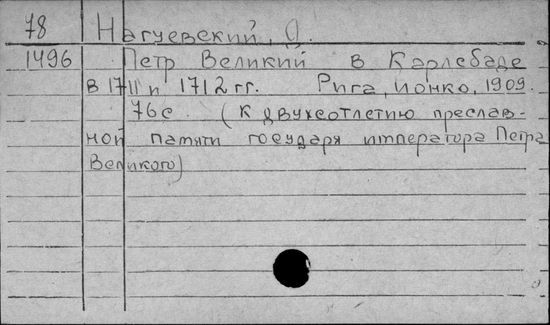 78 Нагуевский, Д.
1496 Петр Великий в Карлсбаде
в 1711 и 1712 гг. Рига, Ионко, 1909.
76с. (К двухсотлетию преслав-
ной памяти государя императора Петра
Великого)